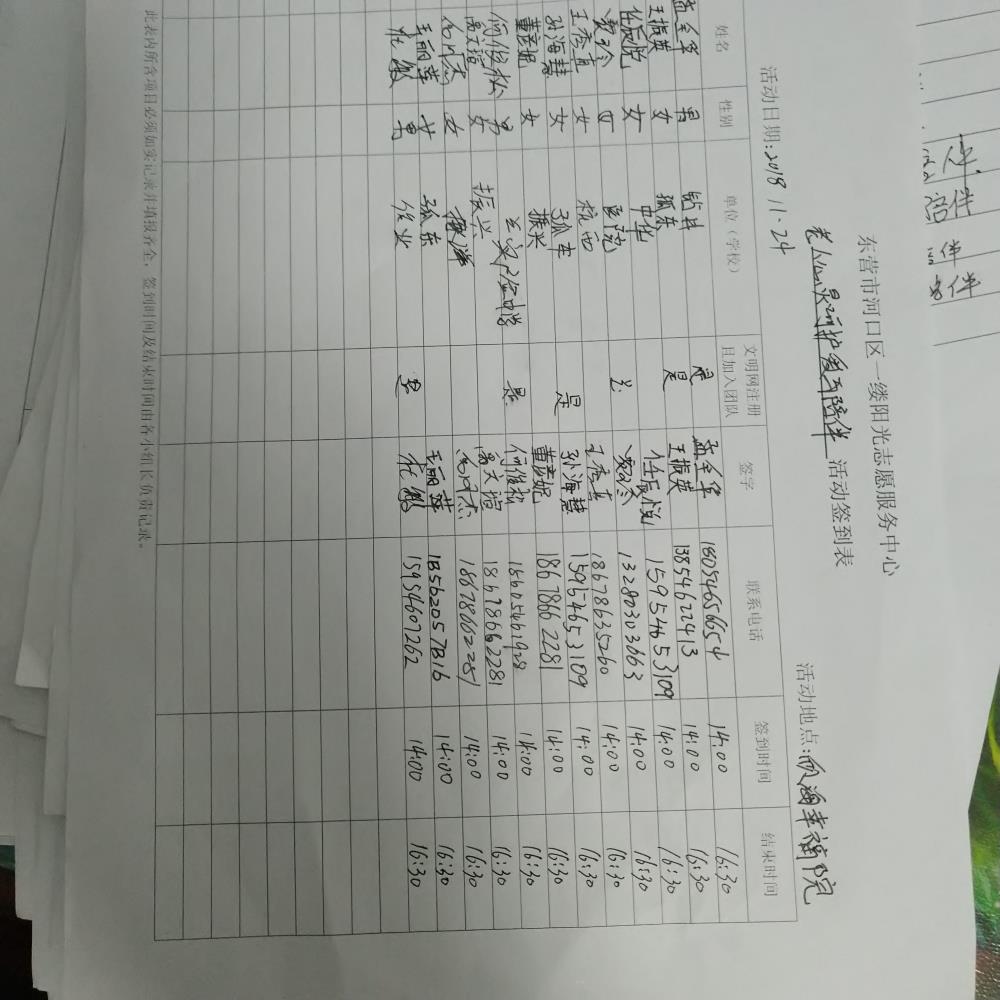 东营市河口区一缕阳光志愿服务中心
老人心灵呵护爱不陪伴 活动签到表
活动日期：2018 11.24 活动地点：幸福院
姓名 性别 单位（学校） 文明网注册且加入团队 签字 联系电话 签到时间 结束时间
孟全华 男 钻井 是 孟全华 18054656654 14:00 16:30
王振英 女 孤东 是 王振英 13854622413 14:00 16:30
任辰悦 女 中华 任辰悦 15954653109 14:00 16:30
女 医院 13280303663 14:00 16:30
王秀真 女 杭西 王秀真 18678635260 14:00 16:30
孙海慧 女 孤东 是 孙海慧 15954653109 14:00 16:30
董彦妮 女 振兴 董彦妮 18678662281 14:00 16:30
何俊松 男 中学 是 何俊松 18605461928 14:00 16:30
女 振兴 18678662281 14:00 16:30
女 振兴 18678662281 14:00 16:30
王丽萍 女 孤东 王丽萍 18562057816 14:00 16:30
男 作业 15954607262 14:00 16:30
此表内所含项目必须如实记录并填报齐全，签到时间及结束时间由各小组长负责记录。
伴
陪伴
伴
伴